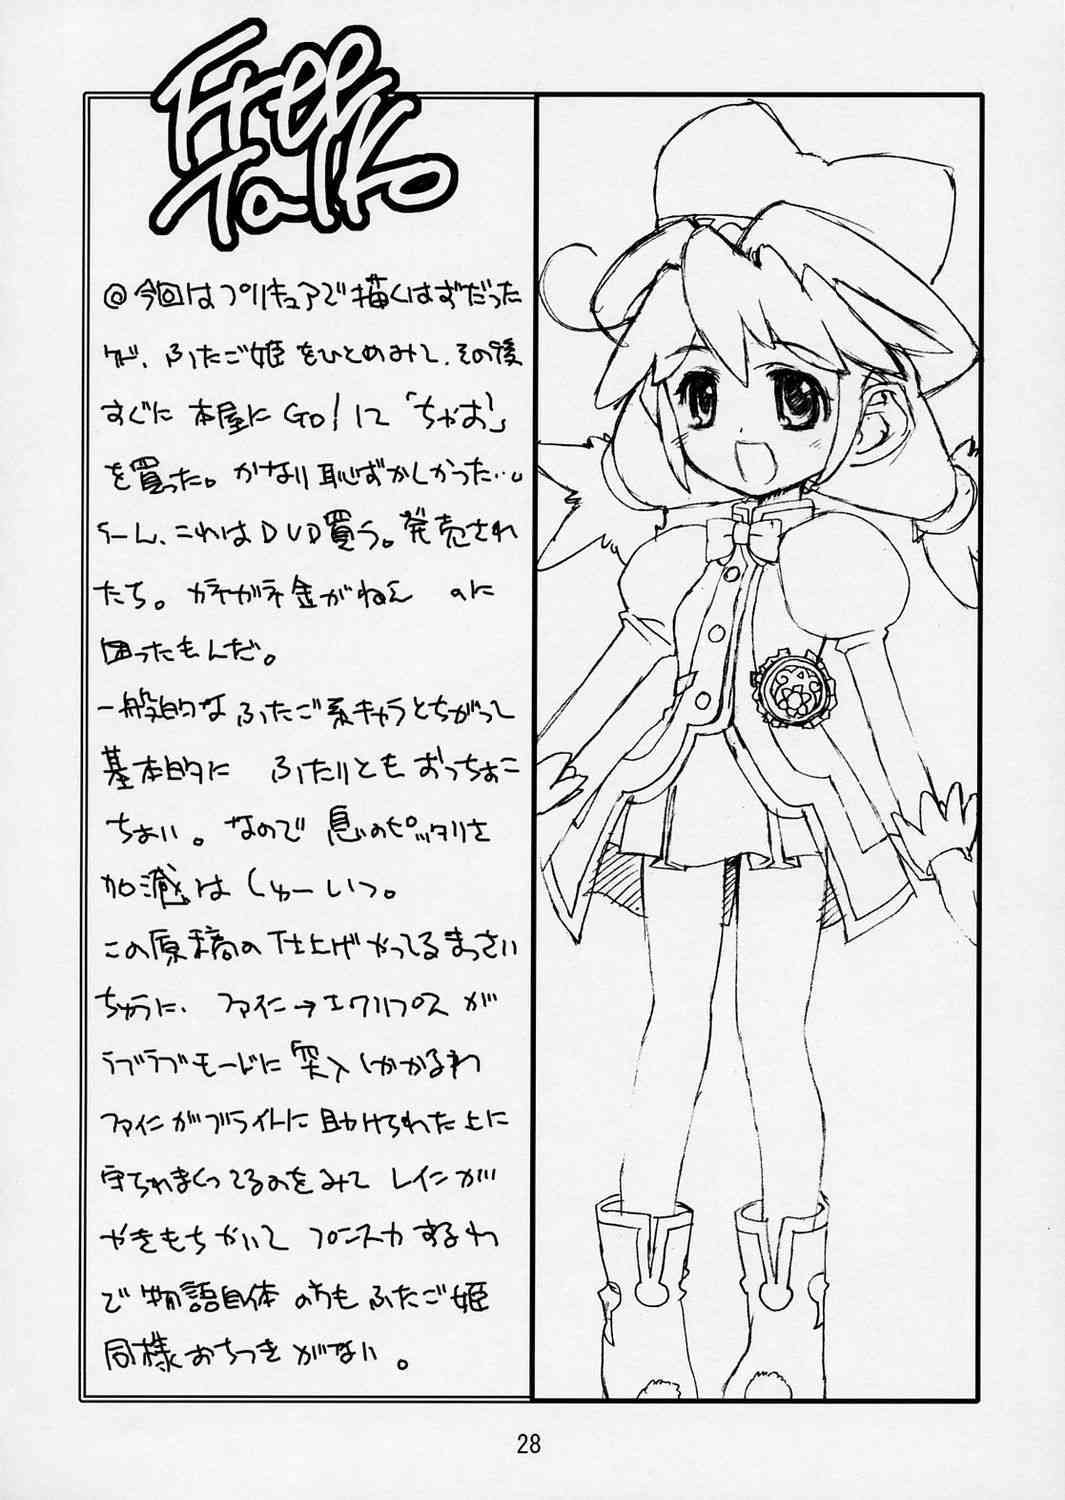 Free
Talk
@今回はプリキュアで描くはずだった
けど、ふたご姫をひとめみて、その後
すぐに本屋にGO!して「ちゃお」
を買った。かなり恥ずかしかった…。
うーん、これはDVD買う。発売され
たら。カネガネ金がねえ のに
困ったもんだ。
一般的なふたご系キャラとちがって
基本的に ふたりともおっちょこ
ちょい。なので息のピッタリさ
加減はしゅーいつ。
この原稿の仕上げやってるまっさい
ちゅうに、ファイン→エクリプスが
ラブラブモードに突入しかかるわ
ファインがブライトに助けられた上に
守られまくってるのをみてレインが
やきもちやいてプンスカするわ
で物語自体のほうもふたご姫
同様おちつきがない。
28